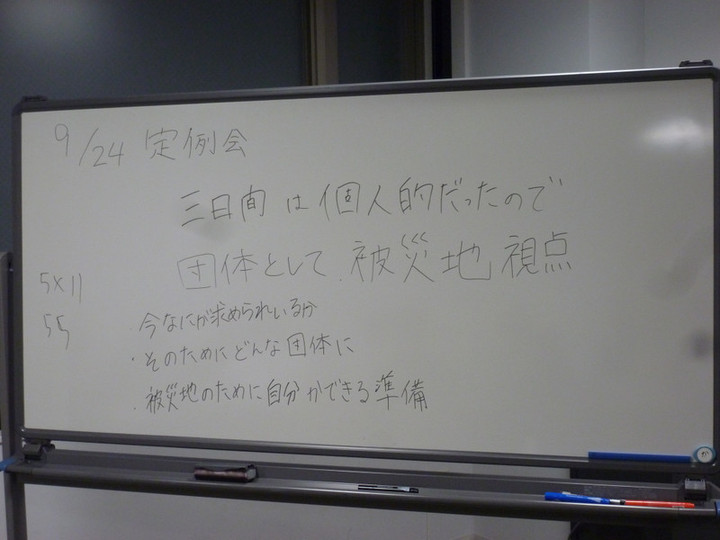 9/24 定例会
三日間は個人的だったので
団体として、被災地視点
5×11
55
・今なにが求められいるか
・そのためにどんな団体に
・被災地のために自分ができる準備